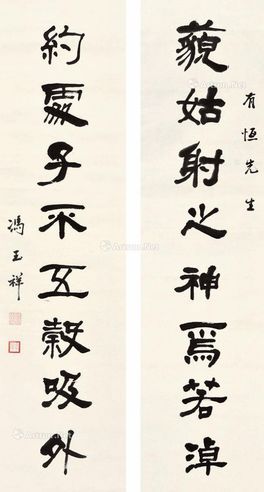 有恒先生
藐姑射之神焉若淖
約處子不五穀吸外
馮玉祥